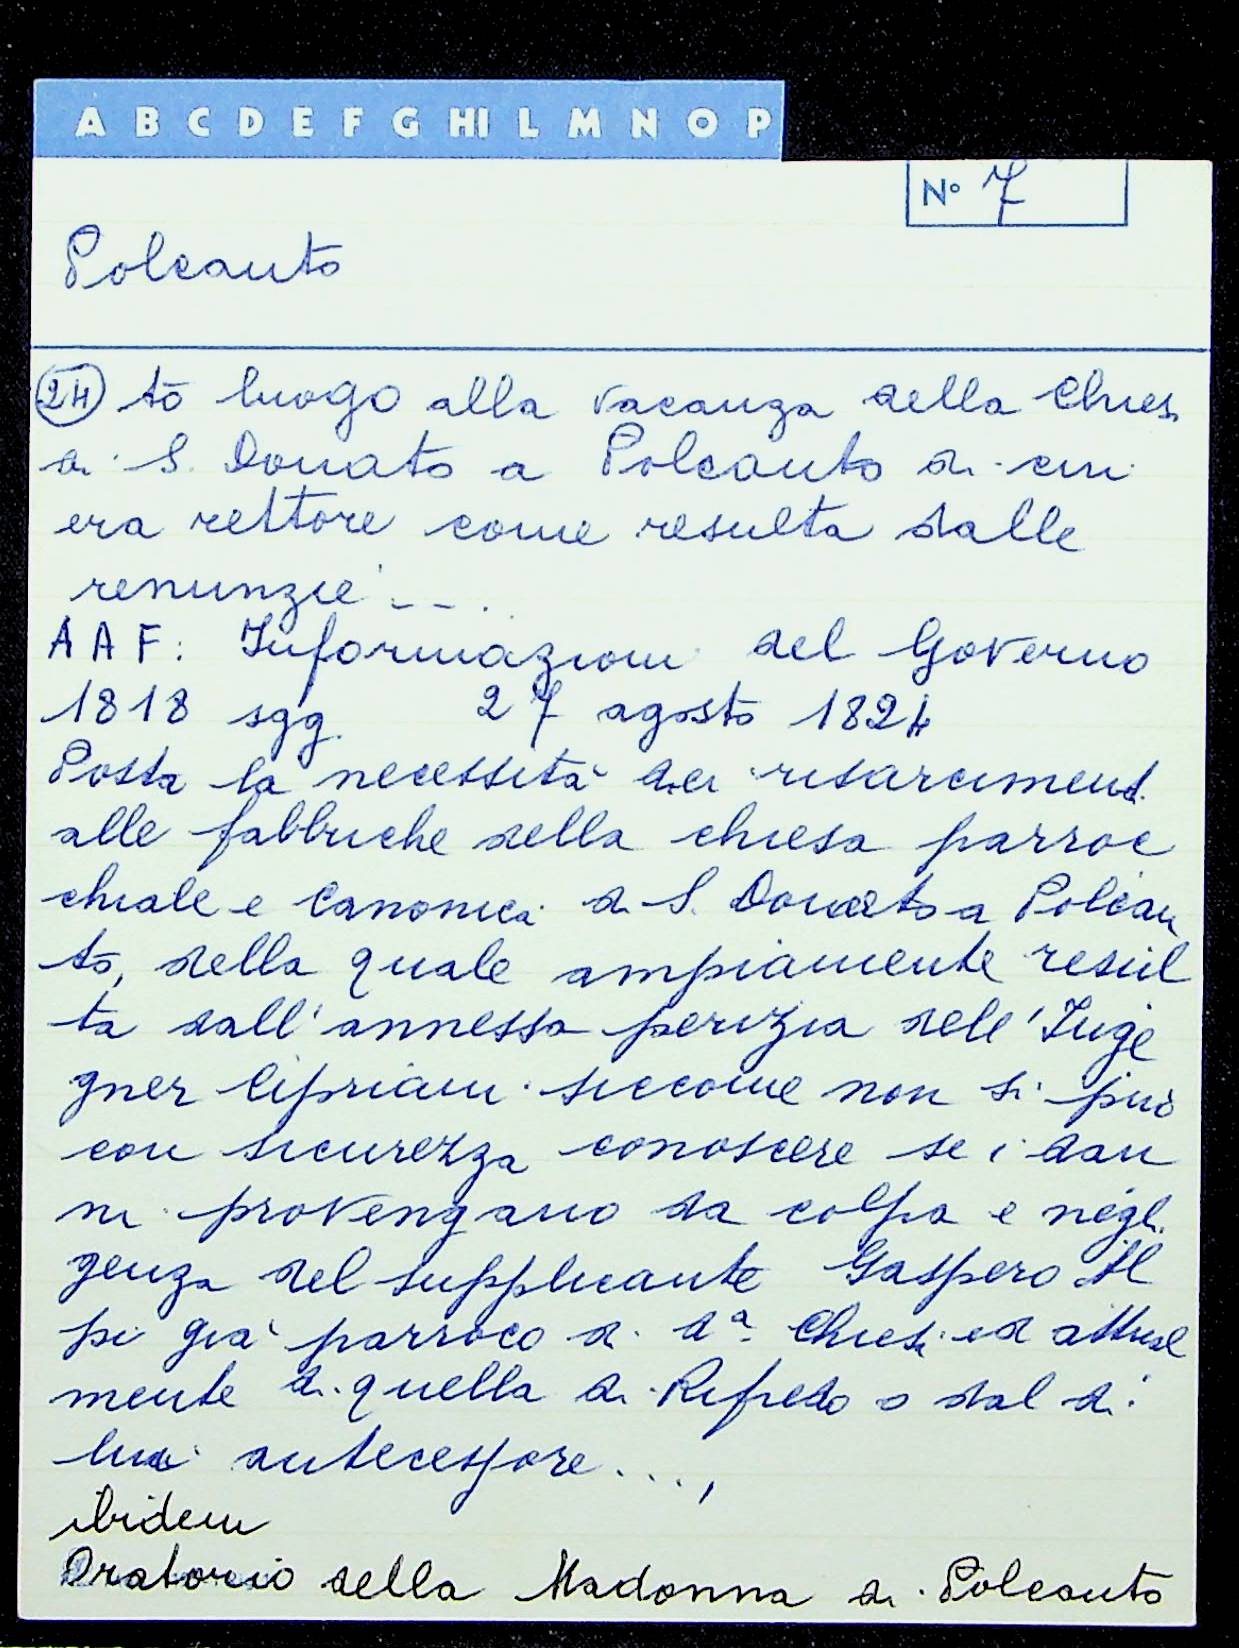 A B C D E F G HI L M N O P
N° 7
Polcanto
24 to luogo alla vacanza della Chies
di S. Donato a Polcanto di cui
era rettore come resulta dalle
renunzie - - .
A A F: Informazioni del Governo
1818 sgg. 27 agosto 1824
Posta la necessità dei risarciment
alle fabbriche della chiesa parroc
chiale e Canonica di S. Donato a Polcan
to, della quale ampiamente resul
ta dall'annessa perizia dell'Inge
gner Cipriani siccome non si può
con sicurezza conoscere se i dan
ni provengano da colpa e negli
genza del supplicante Gaspero Al
pi già parroco di da. Chiesa ed attual
mente di quella di Rifredo o dal di
lui antecessore ....,
ibidem
Oratorio della Madonna di Polcanto